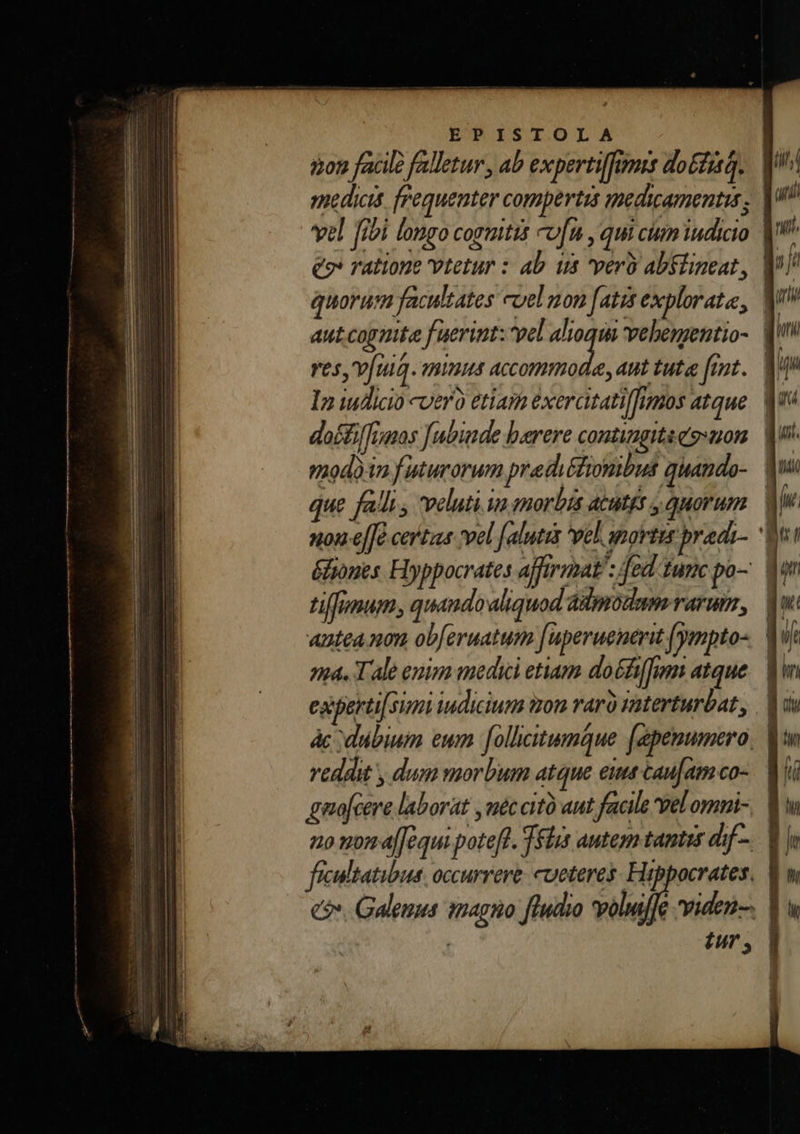 EPISTOLA
non facilè falletur, ab expertißimis doctisq́.
medicis frequenter compertis medicamentis,
vel sibi longo cognitis vsu, qui cùm iudicio
& ratione vtetur: ab iis verò abstineat,
quorum facultates vel non satis exploratæ,
aut cognitæ fuerint: vel alioqui vehementio-
res, vsuiq́. minus accommodæ, aut tutæ sint.
In iudicio verò etiam exercitatißimos atque
doctißimos subinde hærere contingit: & non
modò in futurorum prædictionibus quando-
que falli, veluti in morbis acutis, quorum
non esse certas vel salutis vel mortis prædi-
ctiones Hyppocrates affirmat: sed tunc po-
tißimum, quando aliquod admodum rarum,
antea non obseruatum superuenerit sympto-
ma. Tale enim medici etiam doctißimi atque
expertissimi iudicium non rarò interturbat,
ac dubium eum sollicitumque sæpenumero
reddit, dum morbum atque eius causam co-
gnoscere laborat, nec citò aut facile vel omni-
no non assequi potest. Istis autem tantis dif-
ficultatibus occurrere veteres Hippocrates
& Galenus magno studio voluisse viden-
tur,